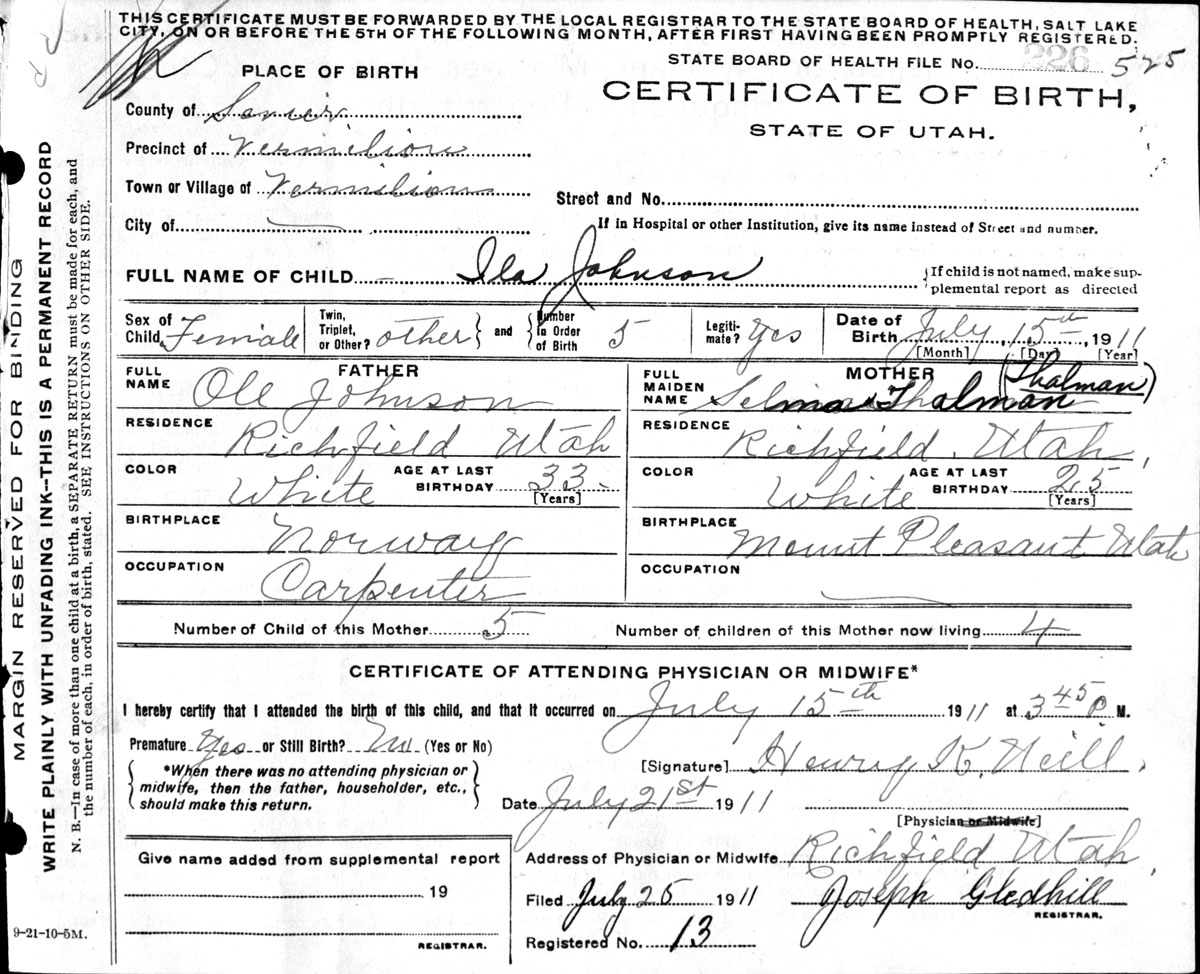 THIS CERTIFICATE MUST BE FORWARDED BY THE LOCAL REGISTRAR TO THE STATE BOARD OF HEALTH, SALT LAKE
CITY, ON OR BEFORE THE 5TH OF THE FOLLOWING MONTH, AFTER FIRST HAVING BEEN PROMPTLY REGISTERED.
STATE BOARD OF HEALTH FILE No. 326 525
PLACE OF BIRTH
CERTIFICATE OF BIRTH,
STATE OF UTAH.
County of Sevier
Precinct of Vermilion
Town or Village of Vermilion
Street and No.
City of
If in Hospital or other Institution, give its name instead of Street and number.
FULL NAME OF CHILD Ila Johnson
{If child is not named, make sup-
plemental report as directed
Sex of Child Female
Twin, Triplet, or Other? other } and { Number in Order of Birth 5
Legiti-mate? Yes
Date of Birth July 15th 1911
[Month] [Day] [Year]
FATHER
FULL NAME Ole Johnson
MOTHER (Thalman)
FULL MAIDEN NAME Selma Thalman
RESIDENCE Richfield Utah
RESIDENCE Richfield, Utah,
COLOR White AGE AT LAST BIRTHDAY 33 [Years]
COLOR White AGE AT LAST BIRTHDAY 25 [Years]
BIRTHPLACE Norway
BIRTHPLACE Mount Pleasant Utah
OCCUPATION Carpenter
OCCUPATION
Number of Child of this Mother 5 Number of children of this Mother now living 4
CERTIFICATE OF ATTENDING PHYSICIAN OR MIDWIFE*
I hereby certify that I attended the birth of this child, and that it occurred on July 15th 1911 at 3 45 P. M.
Premature Yes or Still Birth? No (Yes or No)
{ *When there was no attending physician or
midwife, then the father, householder, etc.,
should make this return. }
[Signature] Henry K. Neill.
Date July 21st 1911
[Physician or Midwife]
Give name added from supplemental report
19
REGISTRAR.
Address of Physician or Midwife Richfield Utah
Filed July 25 1911 Joseph Gledhill
REGISTRAR.
Registered No. 13
9-21-10-5M.
MARGIN RESERVED FOR BINDING
WRITE PLAINLY WITH UNFADING INK--THIS IS A PERMANENT RECORD
N. B.—In case of more than one child at a birth, a SEPARATE RETURN must be made for each, and
the number of each, in order of birth, stated. SEE INSTRUCTIONS ON OTHER SIDE.